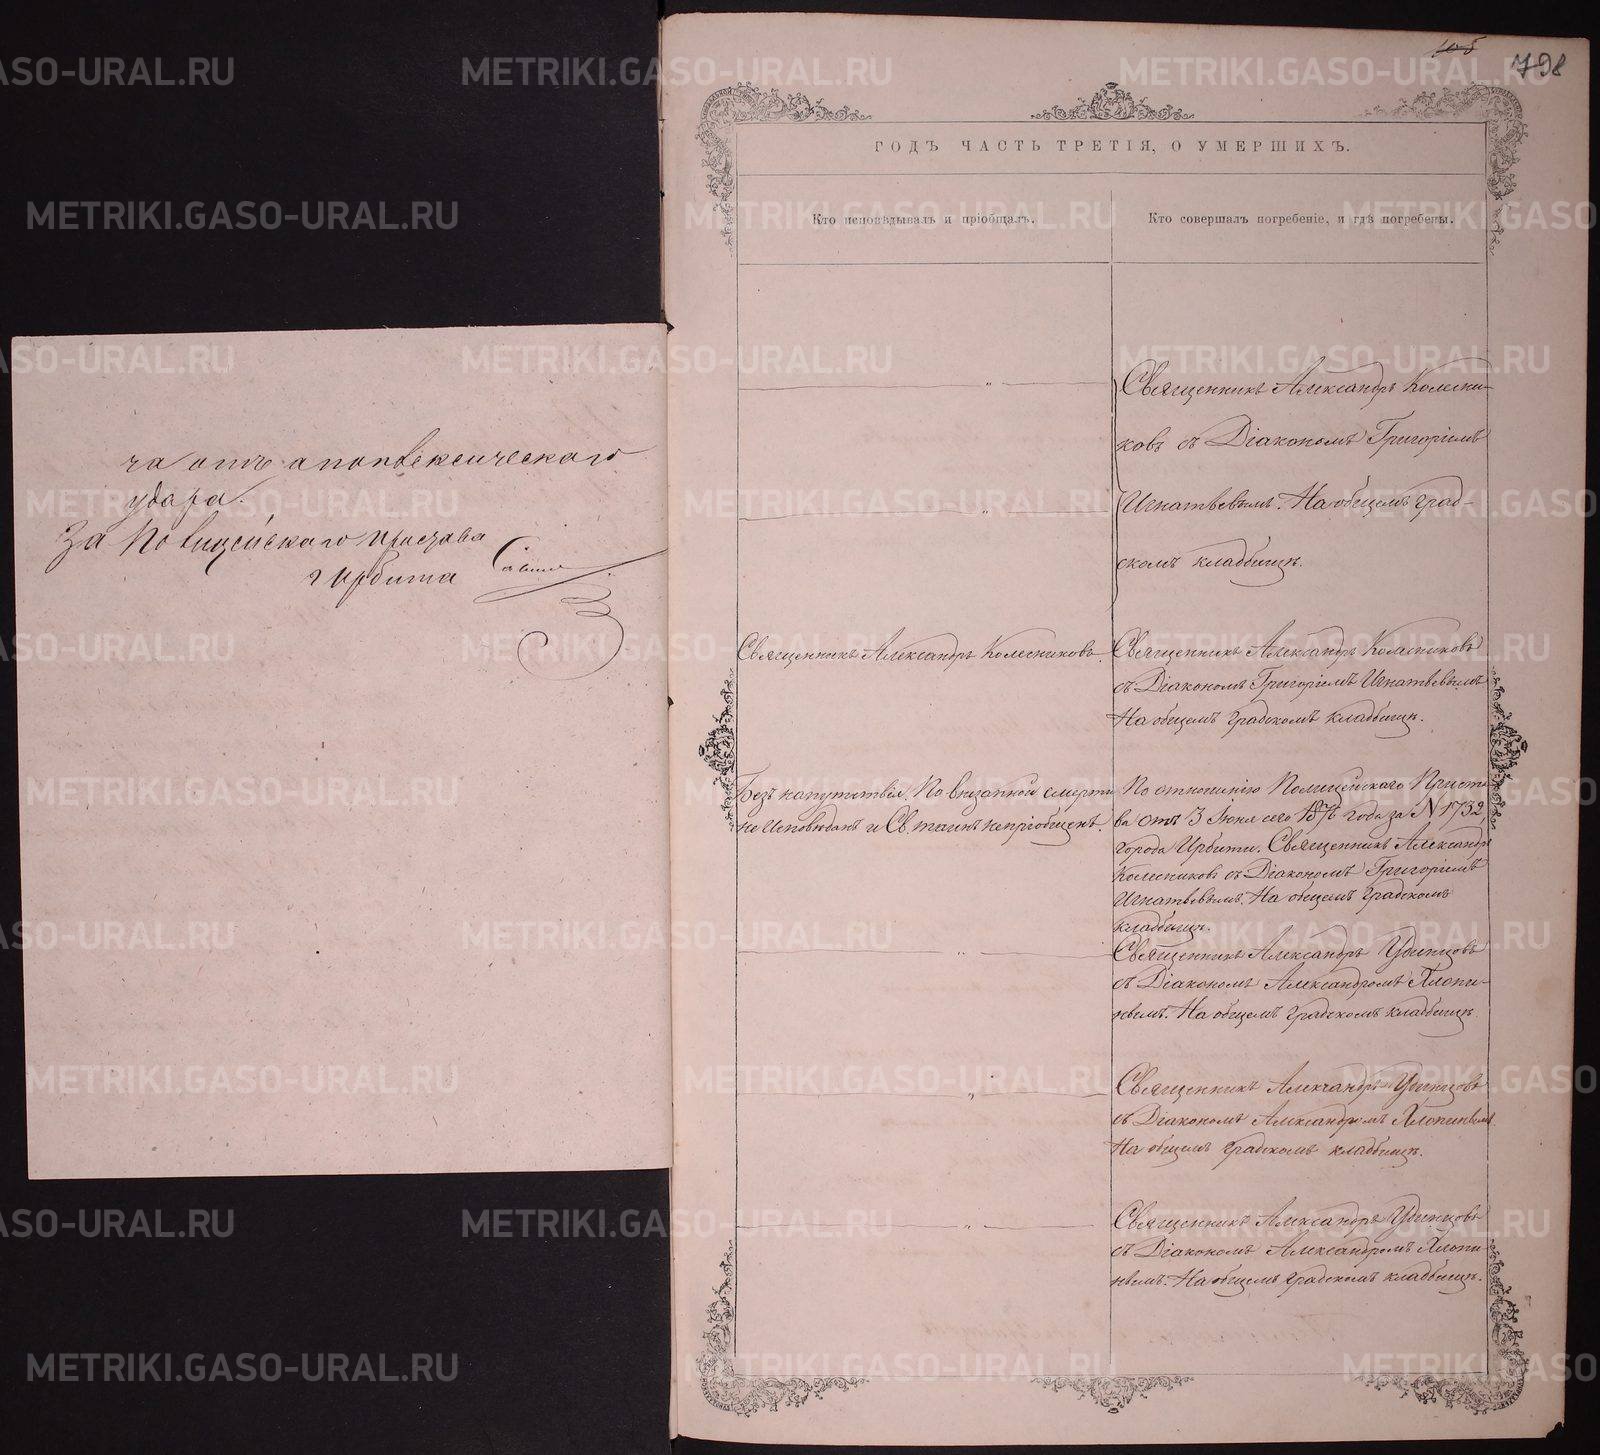 ча отъ апоплексическаго
удара.
За Полицейскаго Пристава
г Ирбита
105
798
ГОДЪ ЧАСТЬ ТРЕТІЯ, О УМЕРШИХЪ.
Кто исповѣдывалъ и пріобщалъ.
Кто совершалъ погребеніе, и гдѣ погребены.
Священникъ Александръ Колесни-
ковъ съ Діакономъ Григоріемъ
Игнатьевымъ. На общемъ град-
скомъ кладбищѣ.
Священникъ Александръ Колесниковъ.
Священникъ Александръ Колесниковъ
съ Діакономъ Григоріемъ Игнатьевымъ
На общемъ градскомъ кладбищѣ.
Безъ напутствія. По внезапной смерти
не исповѣданъ и Св. таинъ непріобщенъ.
По отношенію Полицейскаго Приста
ва отъ 3 Іюня сего 1876 года за N 1732,
города Ирбити. Священникъ Александръ
Колесниковъ съ Діакономъ Григоріемъ
Игнатьевымъ. На общемъ градскомъ
кладбищѣ.
Священникъ Александръ Удинцовъ
съ Діакономъ Александромъ Хлопи-
нымъ. На общемъ градскомъ кладбищѣ
Священникъ Александръ Удинцовъ
съ Діакономъ Александромъ Хлопинымъ
На общемъ градскомъ кладбищѣ.
Священникъ Александръ Удинцовъ
съ Діакономъ Александромъ Хлопи-
нымъ. На общемъ градскомъ кладбищѣ.
METRIKI.GASO-URAL.RU